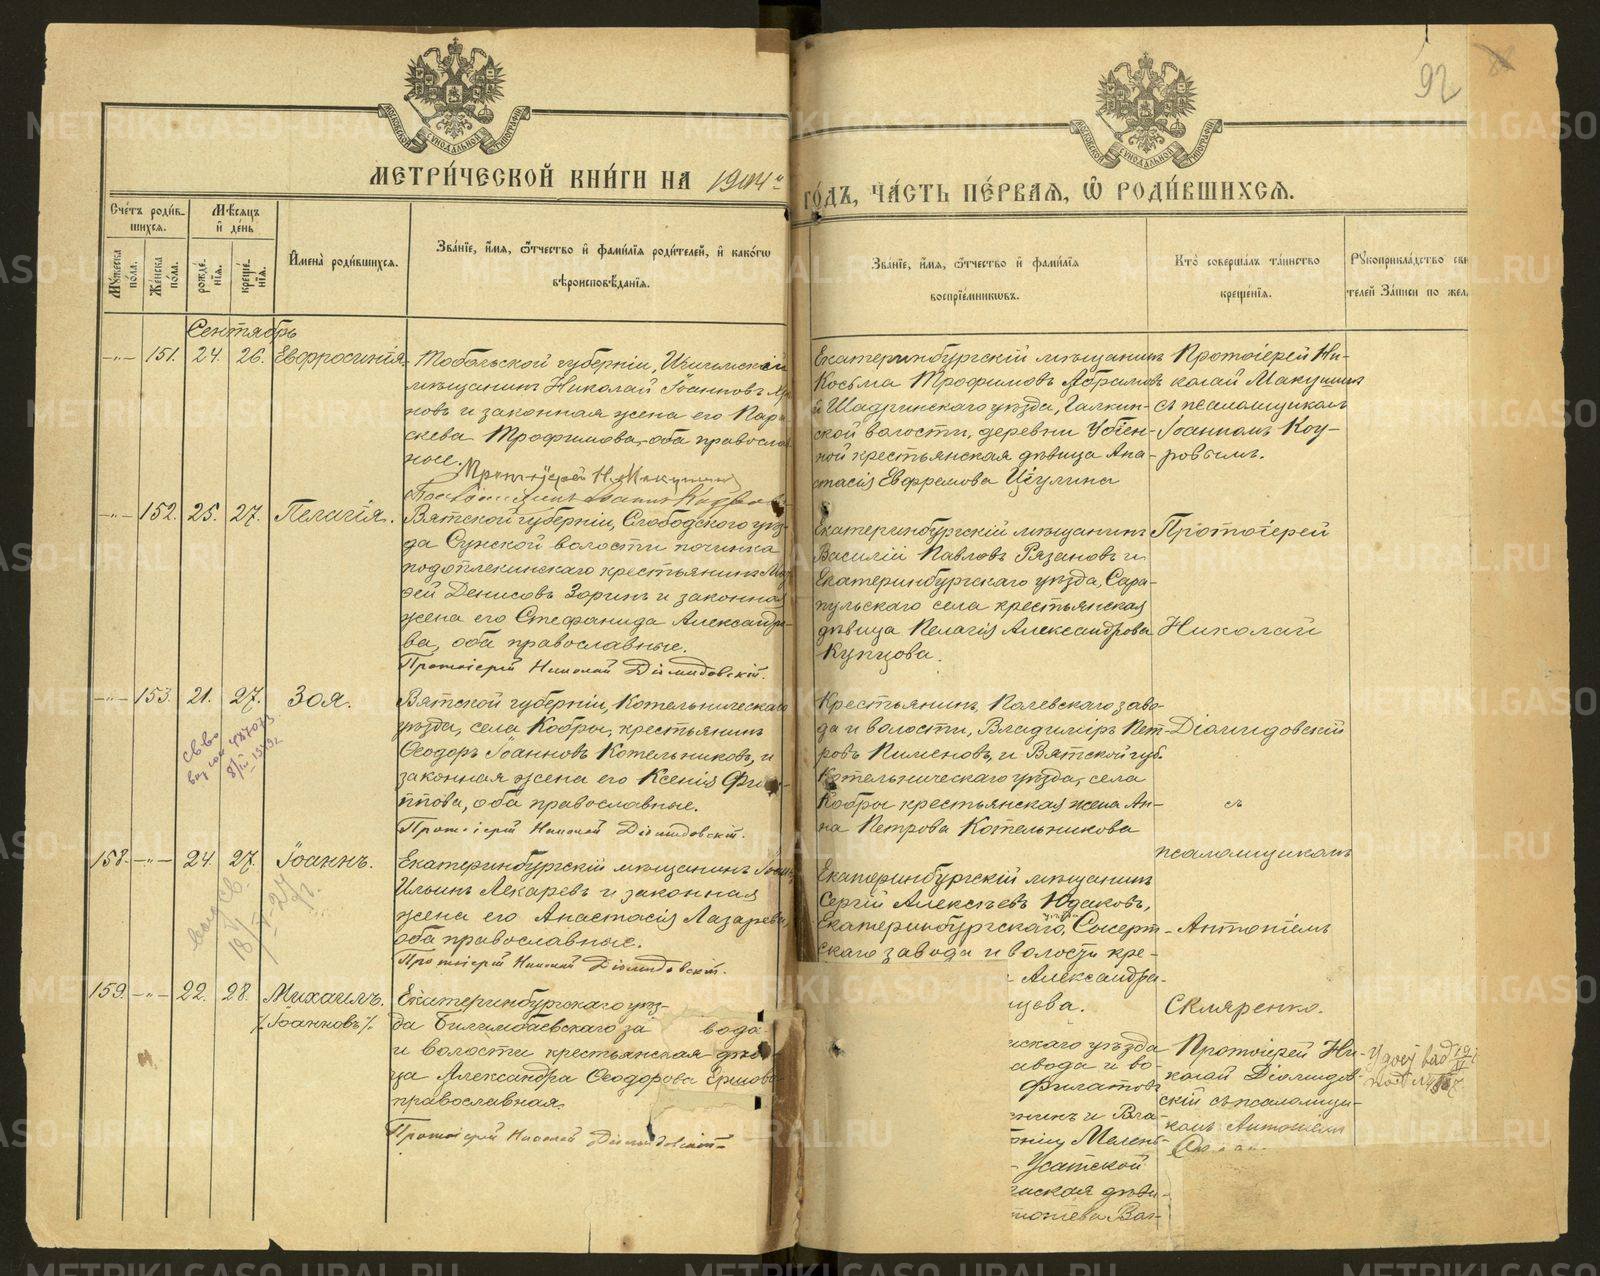 92
МОСКОВСКОЙ СѴНОДАЛЬНОЙ ТИПОГРАФІИ
МОСКОВСКОЙ СѴНОДАЛЬНОЙ ТИПОГРАФІИ
МЕТРИ́ЧЕСКОЙ КНИ́ГИ НА 1904
ГО́ДЪ, ЧА́СТЬ ПЕ́РВАѦ, Ѡ҆ РОДИ́ВШИХСѦ.
Сче́тъ роди́в-
шихся.
Мꙋ́жеска пола.
Же́нска по́ла.
Мѣ́сяцъ
и҆ де́нь
рожде́нїѧ.
креще́нїѧ.
И҆мена̀ роди́вшихся.
Зва́нїе, и҆́мѧ, ѻ҆́тчество и҆ фами́лїѧ роди́телей, и҆ како́гѡ
вѣроисповѣ́данїѧ.
Зва́нїе, и҆́мѧ, ѻ҆́тчество и҆ фами́лїѧ
воспрїе́мникѡвъ.
Кто̀ соверша́лъ та́инство
креще́нїѧ.
Рꙋкоприкла́дство сви
телей За́писи по жел.
Сентябрь
-"- 151. 24. 26. Евфросинія.
Тобольской губерніи, Ишимскій
мѣщанинъ Николай Іоанновъ
новъ и законная жена его Пара
скева Трофимова, оба православ
ные.
Екатеринбургскій мѣщанинъ
Косьма Трофимовъ Абрамовъ
и Шадринскаго уѣзда, Галкин-
ской волости, деревни
ной крестьянская дѣвица Ана-
стасія Евфремова
Протоіерей Ни-
колай Макушинъ
съ псаломщикомъ
Іоанномъ Коу-
ровымъ.
Протоіерей Н. Макушинъ
-"- 152. 25. 27. Пелагія.
Вятской губерніи, Слободского уѣз-
да Сунской волости починка
крестьянинъ
Денисовъ Зоринъ и законная
жена его Стефанида Александро-
ва, оба православные.
Протоіерей Николай Діомидовскій.
Екатеринбургскій мѣщанинъ
Василій Павловъ Рязановъ и
Екатеринбургскаго уѣзда, Сара-
пульскаго села крестьянская
дѣвица Пелагія Александрова
Купцова.
Протоіерей
Николай
-"- 153. 21. 27. Зоя.
Вятской губерніи, Котельническаго
уѣзда, села Кобры, крестьянинъ
Ѳеодоръ Іоанновъ Котельниковъ, и
законная жена его Ксенія Фи
ппова, оба православные.
Протоіерей Николай Діомидовскій.
Крестьянинъ, Полевскаго заво-
да и волости, Владиміръ Пет-
ровъ Пименовъ, и Вятской губ.
Котельническаго уѣзда, села
Кобры крестьянская жена Ан-
на Петрова Котельникова
Діомидовскій
съ
псаломщикомъ
158. -"- 24. 27. Іоаннъ.
Екатеринбургскій мѣщанинъ
Ильинъ Лекаревъ и законная
жена его Анастасія Лазарева,
оба православные.
Протоіерей Николай Діомидовскій.
Екатеринбургскій мѣщанинъ
Сергій Алексѣевъ Юдаковъ,
Екатеринбургскаго, Сысерт-
скаго завода и волости кре-
Александра
щева.
Антоніемъ
Скляренко.
159. -"- 22. 28. Михаилъ.
/. Іоанновъ ./.
Екатеринбургскаго уѣз-
да Билимбаевскаго за вода
и волости крестьянская дѣви-
ца Александра Ѳеодорова Ершова
православная.
Протоіерей Николай Діомидовскій
нскаго уѣзда
авода и во-
Филатовъ
нинъ и Вла-
Мелень-
Усатской
нская дѣви-
Протоіерей Ни-
колай Діомидов-
скій съ псаломщи-
комъ Антоніемъ